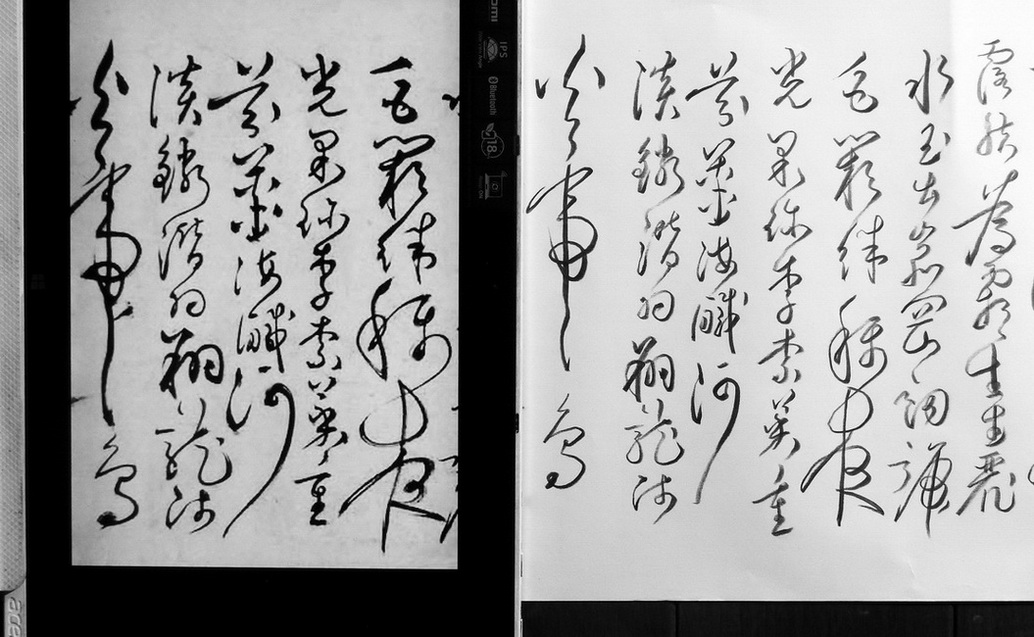 巨闕珠稱夜
光果珎李柰菜重
芥薑海鹹河
淡鱗潛羽翔龍師
火帝鳥
IPS
Bluetooth
露結為霜金生麗
水玉出崑岡劍號
巨闕珠稱夜
光果珎李柰菜重
芥薑海鹹河
淡鱗潛羽翔龍師
火帝鳥